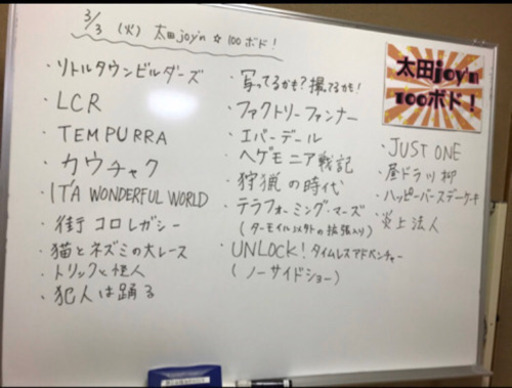 3/3 (火) 太田joy'n ☆ 100ボド!
・リトルタウンビルダーズ
・LCR
・TEMPURRA
・カウチャク
・IT'A WONDERFUL WORLD
・街コロレガシー
・猫とネズミの大レース
・トリックと怪人
・犯人は踊る
・写ってるかも?撮てるかも!
・ファクトリーファンナー
・エバーデール
・ヘゲモニア戦記
・狩猟の時代
・テラフォーミング・マーズ
(ターモイル以外の拡張入り)
・UNLOCK! タイムレスアドベンチャー
(ノーサイドショー)
・JUST ONE
・昼ドラ川柳
・ハッピーバースデーケーキ
・炎上法人
太田joy'n
100ボド!